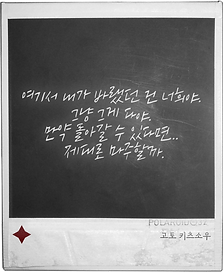 여기서 내가 바랬던 건 너희야.
그냥 그게 다야.
만약 돌아갈 수 있다면..
제대로 마주할까.
POLAROID
고토 키즈소우